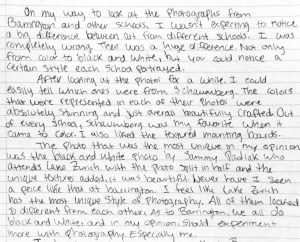 On my way to look at the photographs from
Barrington and other schools. I wasn't expecting to notice
a big difference between art from different schools. I was
completely wrong. There was a huge difference. Not only
from color to black and white, but you could notice a
certain style each school portrayed.
After looking at the photos for a while I could
easily tell which ones were from Schaumburg. The colors
that were represented in each of their photos were
absolutely stunning, and just overall beautifully crafted. Out
of every school, Schaumburg was my favorite when it
came to color. I also liked the textured manting boards.
The photo that was the most unique in my opinion
was the black and white photo by Sammy who
attends Lake Zurich with the photo split in half and the
unique texture added, it was beautiful. Never have I seen
a peice like that at barrington. I feel like Lake Zurich
has the most unique style of photography. All of them looked
so different from each other. As to Barrington, we all do
black and white and in my opinion, should experiment
more with photography. Especially me.